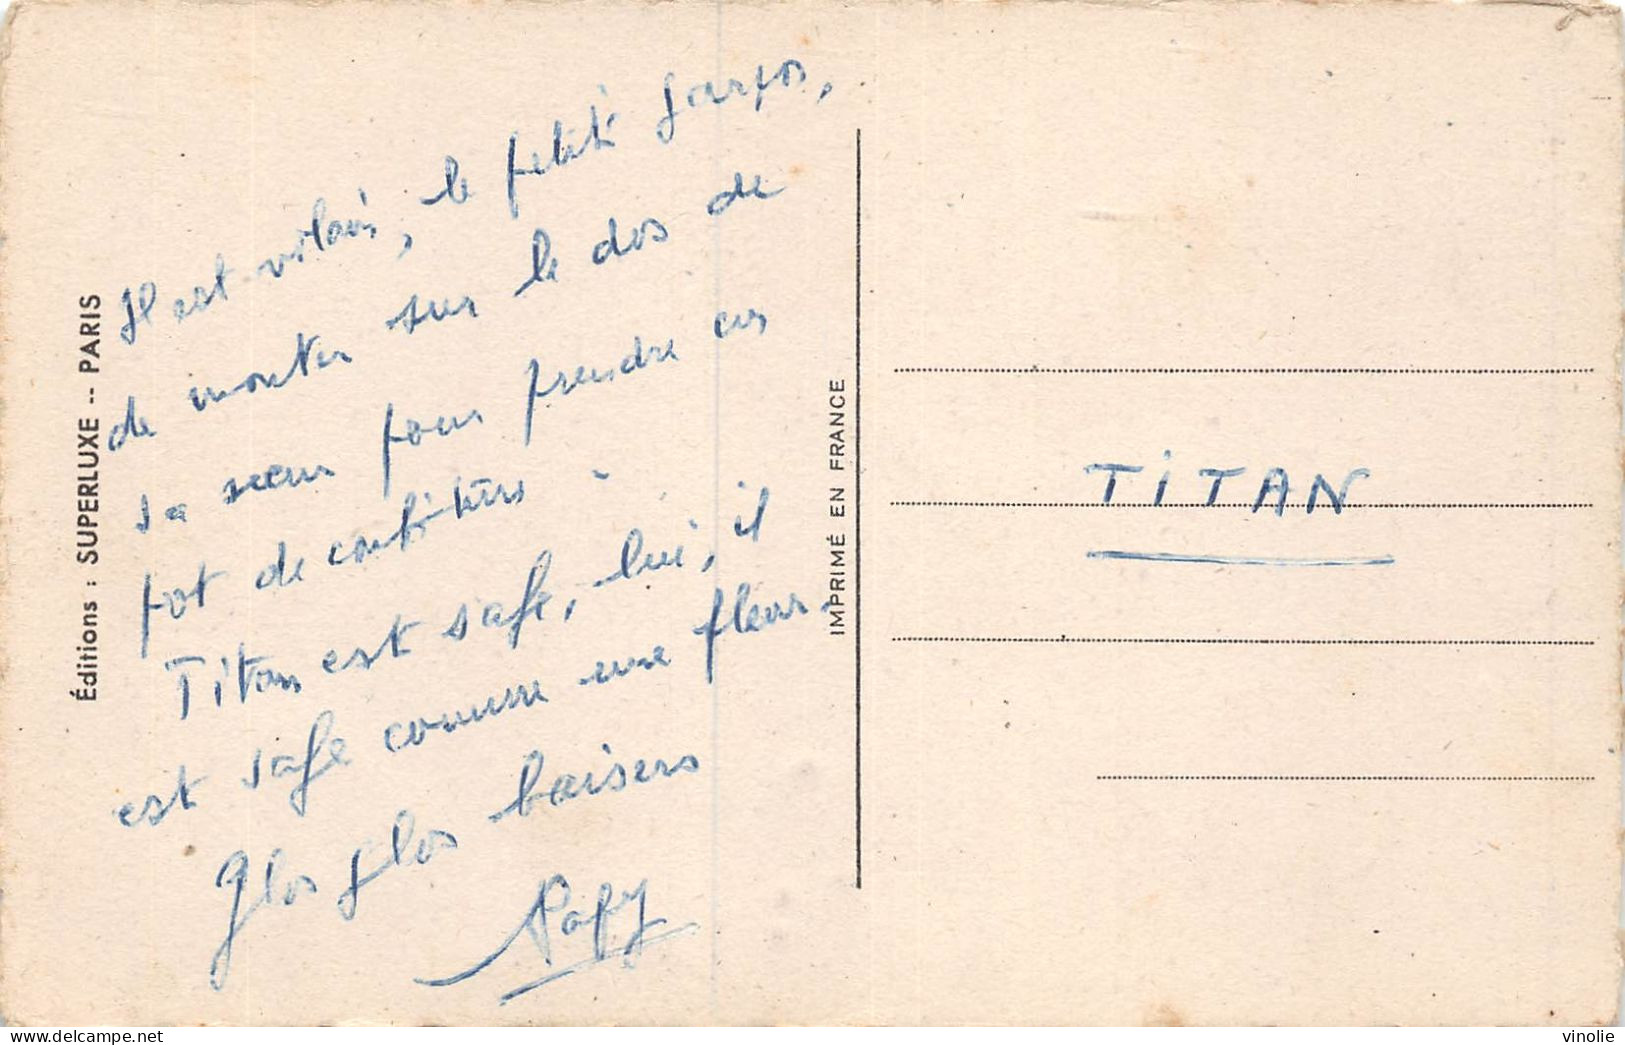 Il est vilain, le petit garços,
de monter sur le dos de
sa sœur pour prendre ces
pot de confitures.
Titan est safe, lui, il
est safe comme une fleur.
Glos glos baisers
Papy
Éditions : SUPERLUXE -- PARIS
IMPRIMÉ EN FRANCE
TiTAN
vinolie